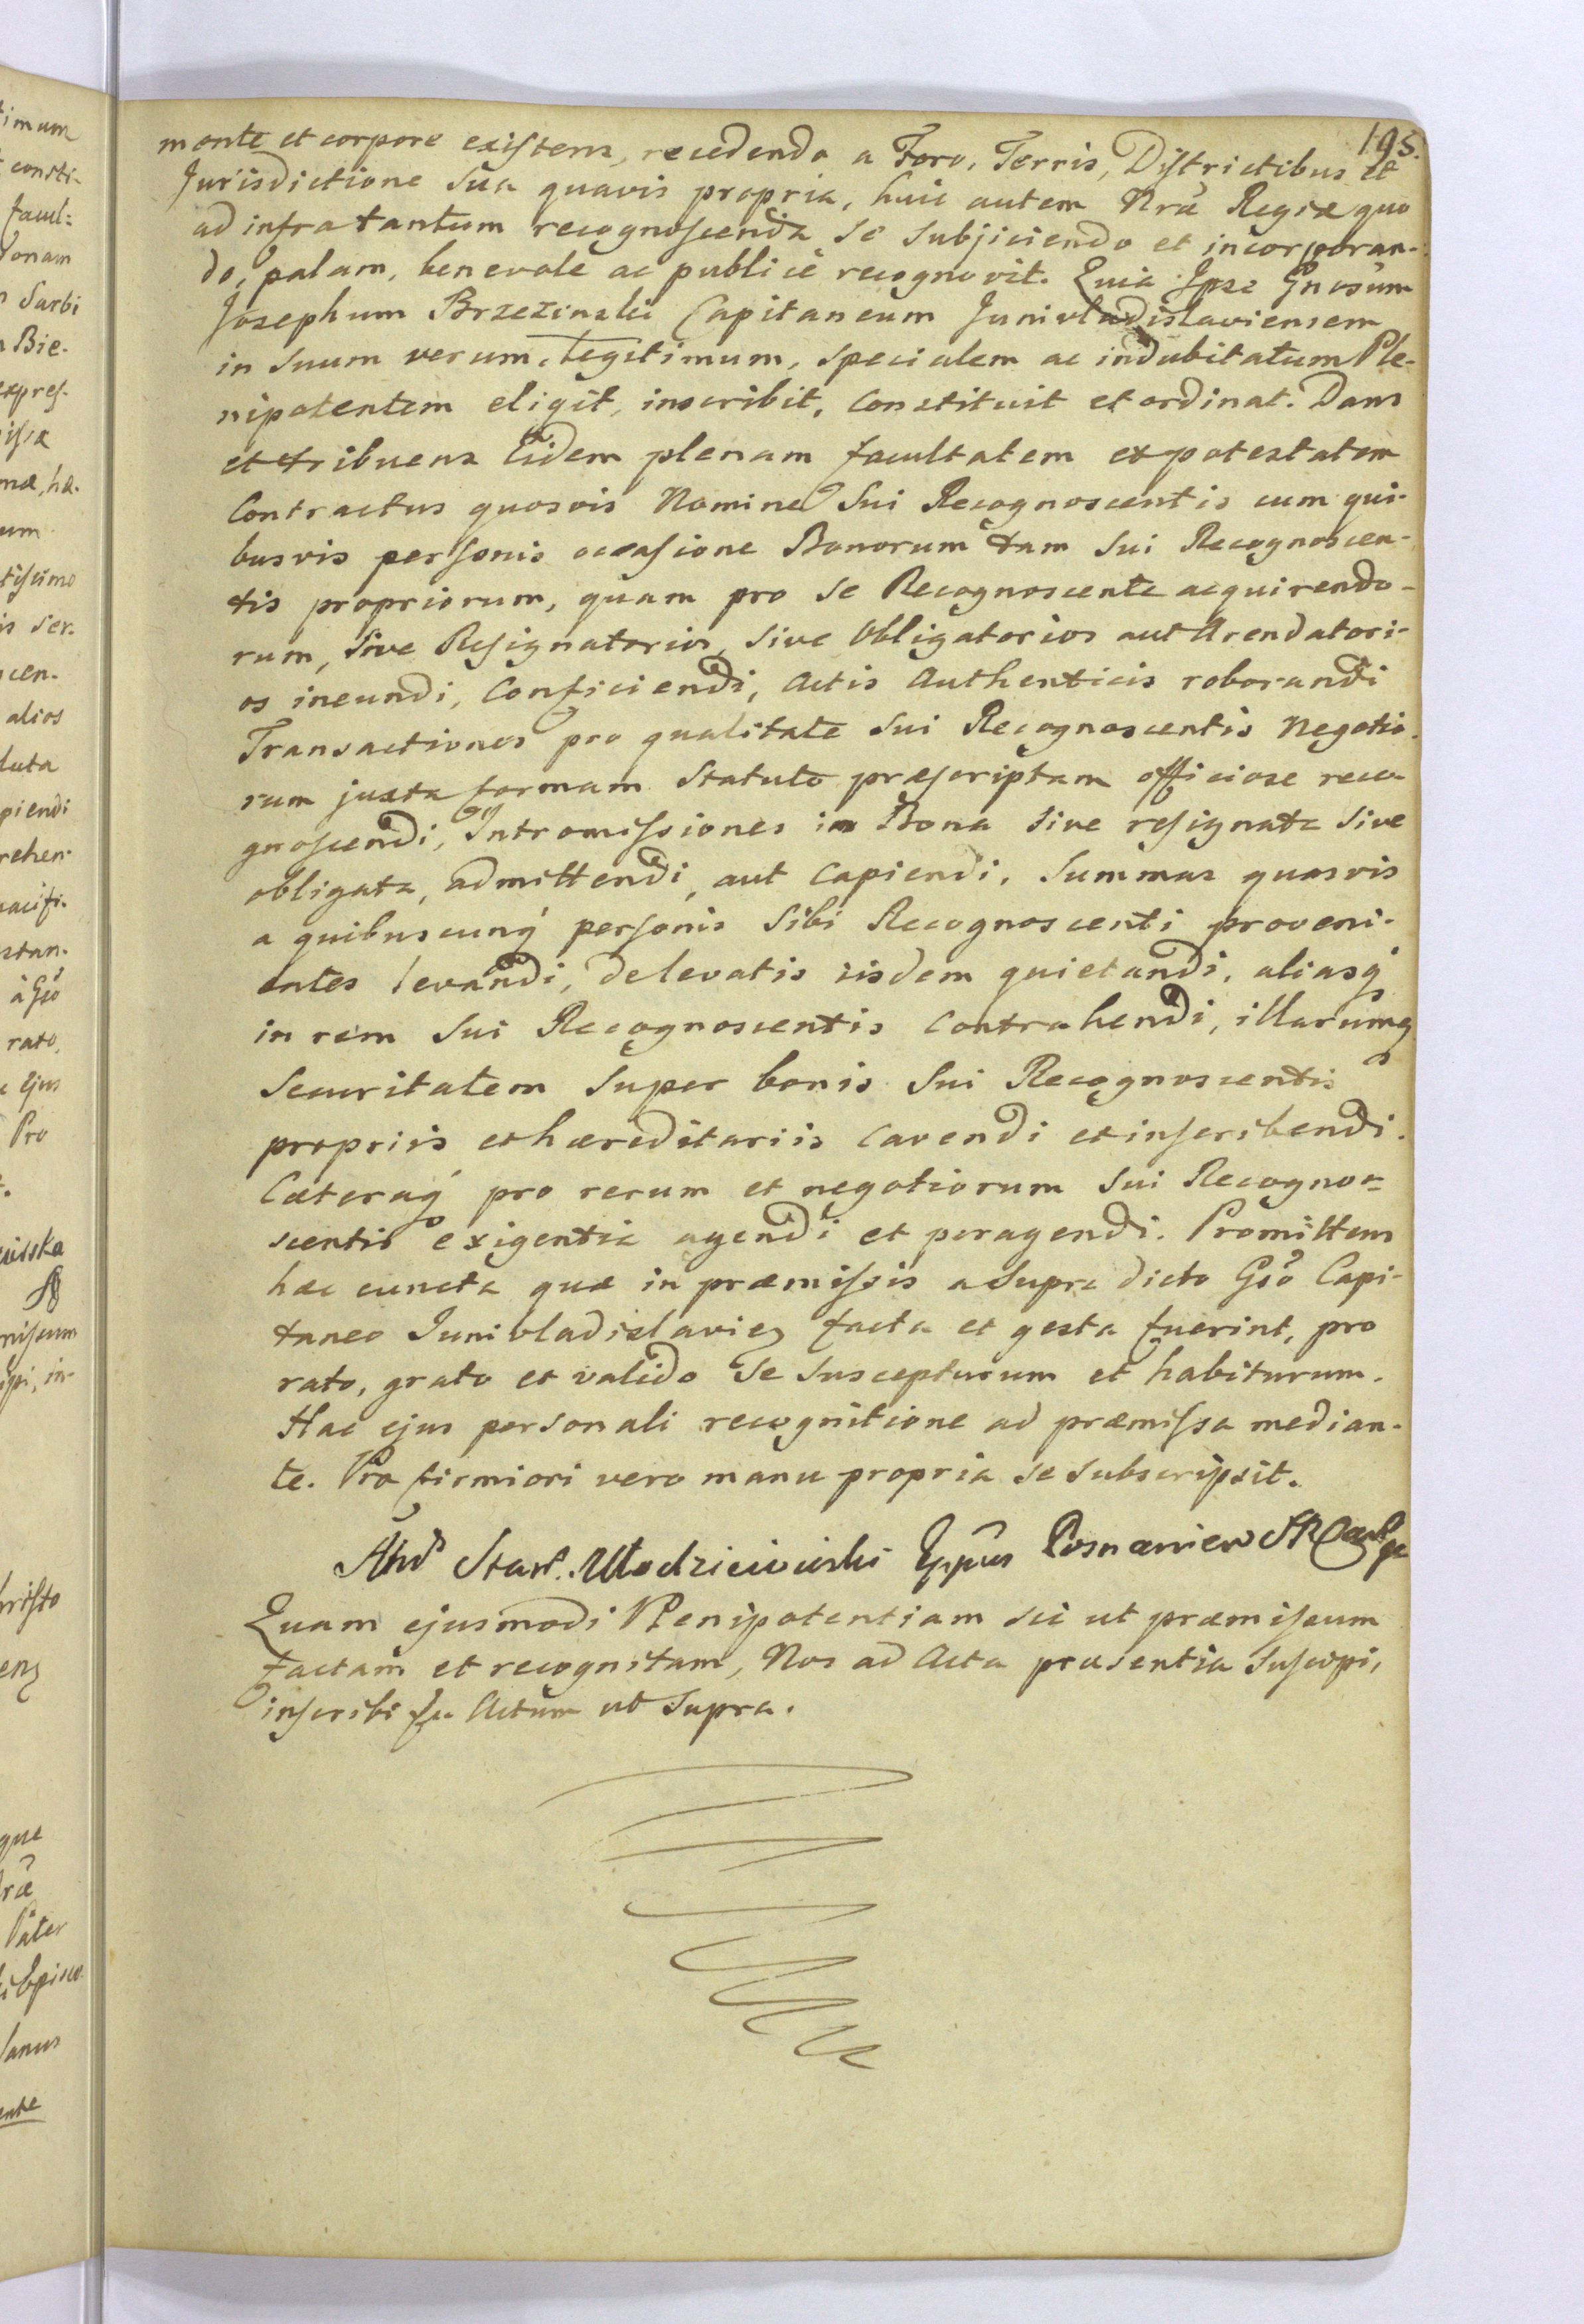 195.
mente et corpore existens, recedendo a Foro, Terris, Districtibus et
Jurisdictione Sua quavis propria, huic autem Nræ Regiæ quo
ad infra tantum recognoscenda Se Subjiciendo et incorporan-
do, palam, benevole ac publicè recognovit. Quia Ipse Gnosum
Josephum Brzeziński Capitaneum Junivladislaviensem
in Suum verum, legitimum, specialem ac indubitatum Ple-
nipotentem eligit, inscribit, Constituit et ordinat. Dans
et tribuens Eidem plenam facultatem et potestatem
Contractus quosvis Nomine Sui Recognoscentis cum qui-
busvis personis occasione Bonorum tam Sui Recognoscen-
tis propriorum, quam pro Se Recognoscente acquirendo-
rum, Sive Resignatorios, Sive Obligatorios aut Arendatori-
os ineundi, Conficiendi, Actis Authenticis roborandi
Transactiones pro qualitate Sui Recognoscentis Negotio-
rum juxta formam Statuto præscriptam officiose reco-
gnoscendi, Intromissiones in Bona Sive resignata Sive
obligata, admittendi, aut Capiendi, Summas quasvis
a quibuscunq personis Sibi Recognoscenti proveni-
entes levandi, de levatis iisdem quietandi, aliasq
in rem Sui Recognoscentis Contrahendi, illarumq
Securitatem Super bonis Sui Recognoscentis
propriis et hæreditariis Cavendi et inscribendi.
Cæteraq pro rerum et negotiorum Sui Recogno-
scentis exigentia agendi et peragendi. Promittens
hæc cuncta quæ in præmissis a Supra dicto Gso Capi-
taneo Junivladislavien facta et gesta fuerint, pro
rato, grato et valido Se Suscepturum et habiturum.
Hac ejus personali recognitione ad præmissa median-
te. Pro firmiori vero manu propria Se Subscripsit.
Stan. Młodzieiowski Eppus Posnanien
Quam ejusmodi Plenipotentiam sic ut præmissum
factam et recognitam, Nos ad Acta præsentia Suscipi,
inscribi Actum ut Supra.